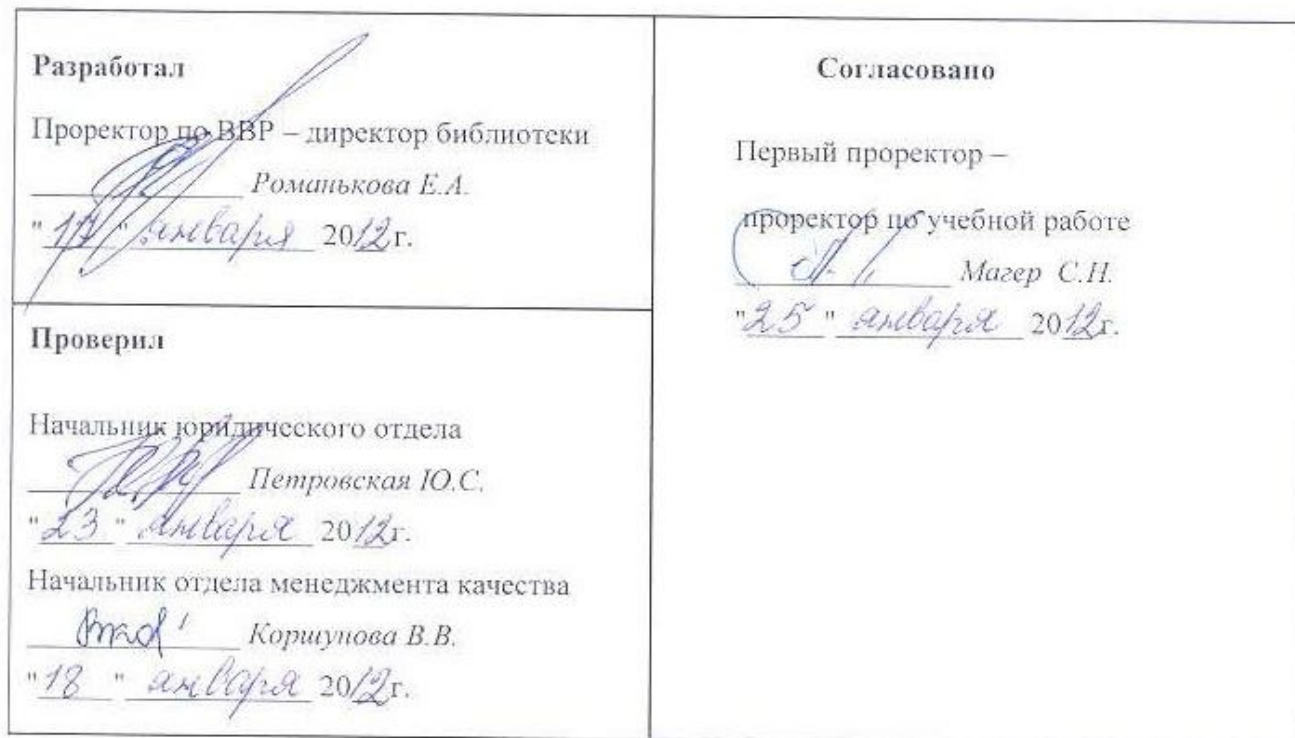 Разработал
Проректор по ВВР – директор библиотеки
Романькова Е.А.
"17" января 2012г.
Проверил
Начальник юридического отдела
Петровская Ю.С.
"23" января 2012г.
Начальник отдела менеджмента качества
Коршунова В.В.
"18" января 2012г.
Согласовано
Первый проректор –
проректор по учебной работе
Магер С.Н.
"25" января 2012г.